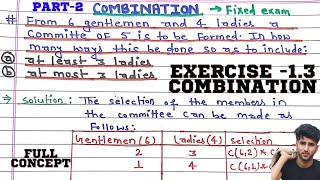 PART-2 COMBINATION → Fixed exam
# From 6 gentlemen and 4 ladies a
Committe of 5 is to be formed. In how
many ways this be done so as to include:
(a) at least 3 ladies
(b) at most 2 ladies
EXERCISE -1.3
COMBINATION
→ Solution: The selection of the members in
the committee can be made as
Follows:
Gentlemen (6) Ladies (4) Selection
2 3 C(6,2)*
1 4 C(6,1)*
FULL
CONCEPT